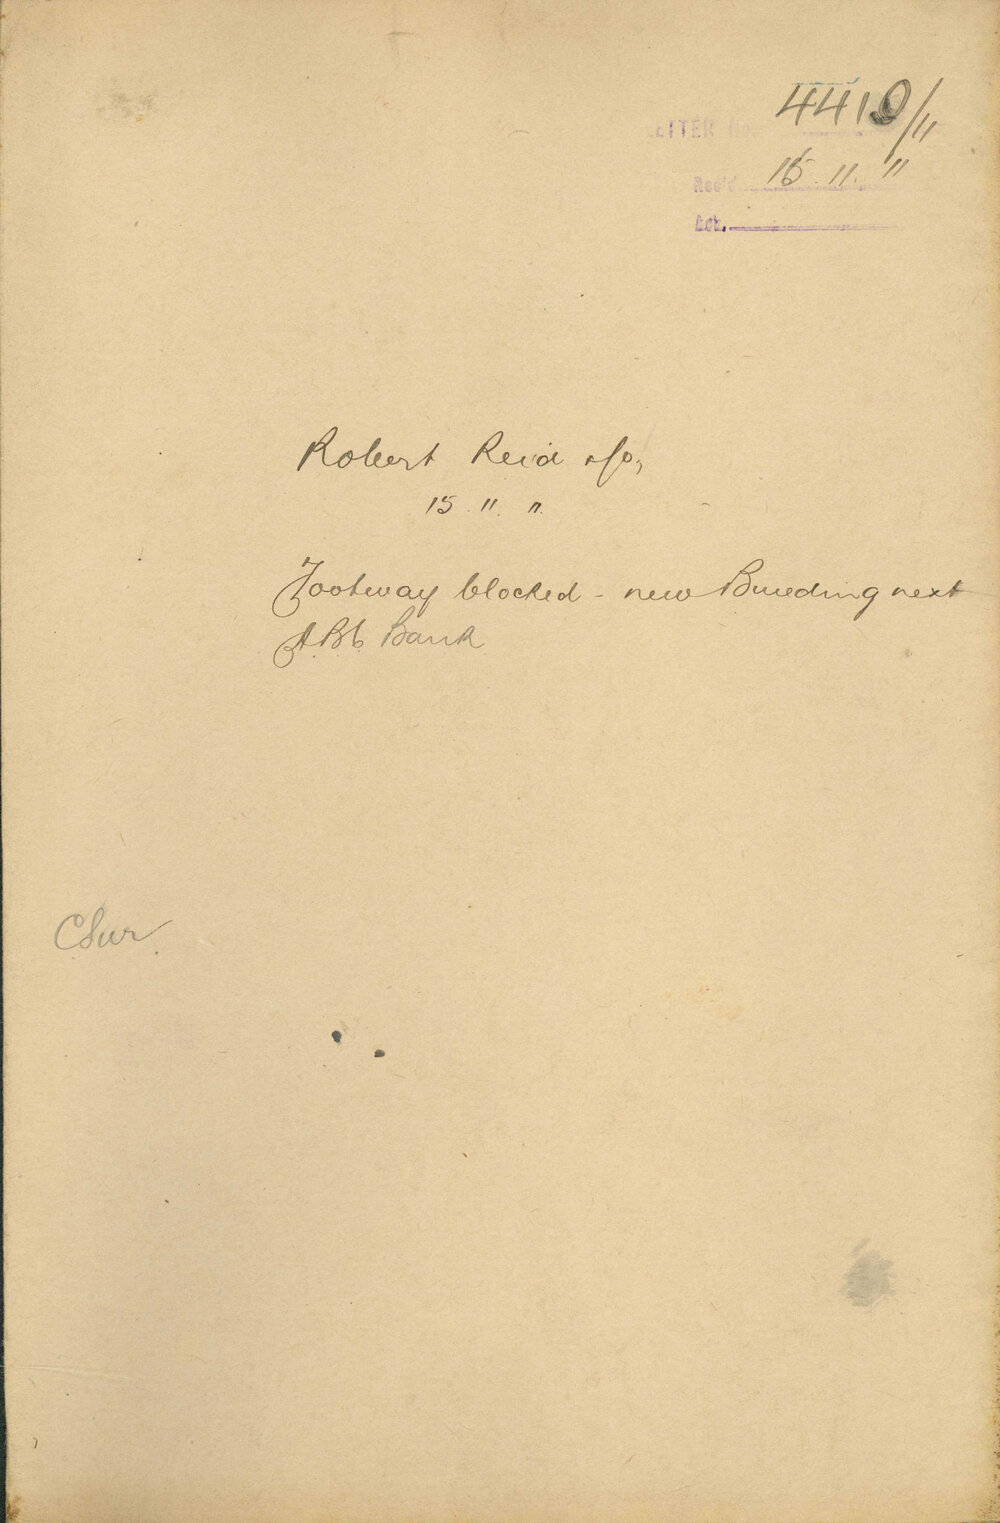 LETTER No. 4410/11
Rec'd 15. 11. "
Robert Reid & Co,
15. 11. 11.
Footway blocked - new Building next
A.B.C. Bank
CSur.